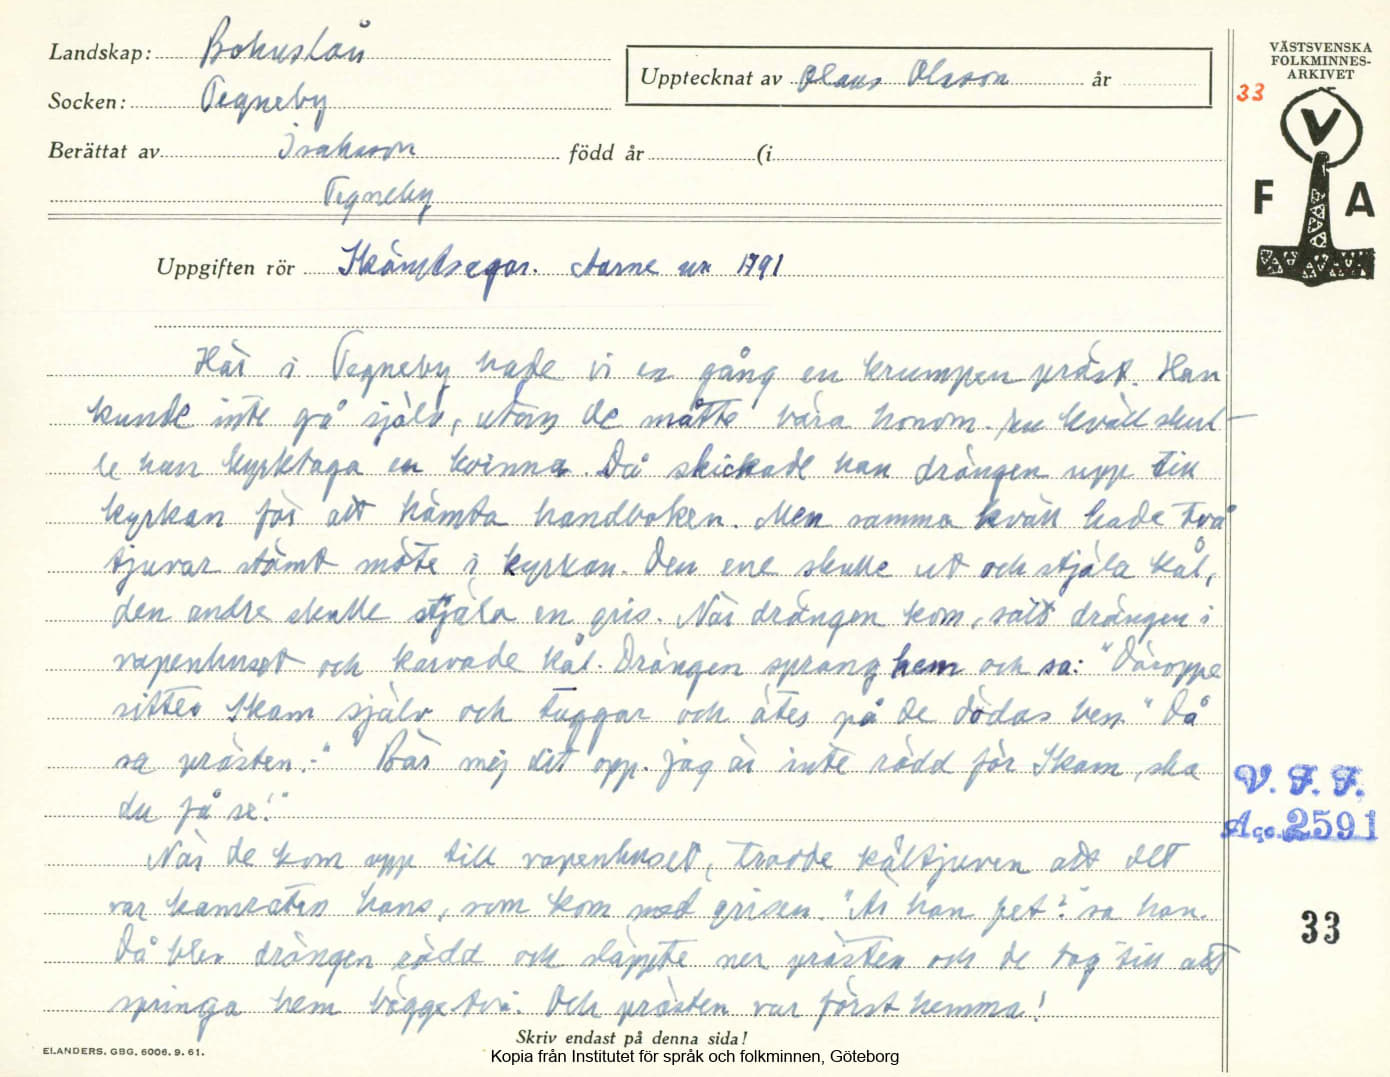 Landskap: Bohuslän
Upptecknat av Olaus Olsson år
Socken: Tegneby
Berättat av Isaksson född år (i
Tegneby
VÄSTSVENSKA
FOLKMINNES-
ARKIVET
33
V
F A
Uppgiften rör Skämtsagor. Aarne nr 1791
Här i Tegneby hade vi en gång en krumpen präst. Han
kunde inte gå själv, utan de måtte bära honom. En kväll skul-
le han kyrktaga en kvinna. Då skickade han drängen upp till
kyrkan för att hämta handboken. Men samma kväll hade två
tjuvar stämt möte i kyrkan. Den ene skulle ut och stjäla kål,
den andre skulle stjäla en gris. När drängen kom, satt drängen i
vapenhuset och karvade kål. Drängen sprang hem och sa: "Däroppe
sitter Skam själv och tuggar och äter på de dödas ben." Då
sa prästen:-" Bär mej dit opp. Jag är inte rädd för Skam, ska
du få se!"
När de kom upp till vapenhuset, trodde kåltjuven att det
var kamraten hans, som kom med grisen. "Är han fet?" sa han.
Då blev drängen rädd och släppte ner prästen och de tog till att
springa hem bägge två. Och prästen var först hemma!
V. F. F.
Acc. 2591
33
Skriv endast på denna sida!
ELANDERS, GBG, 6006. 9. 61.
Kopia från Institutet för språk och folkminnen, Göteborg